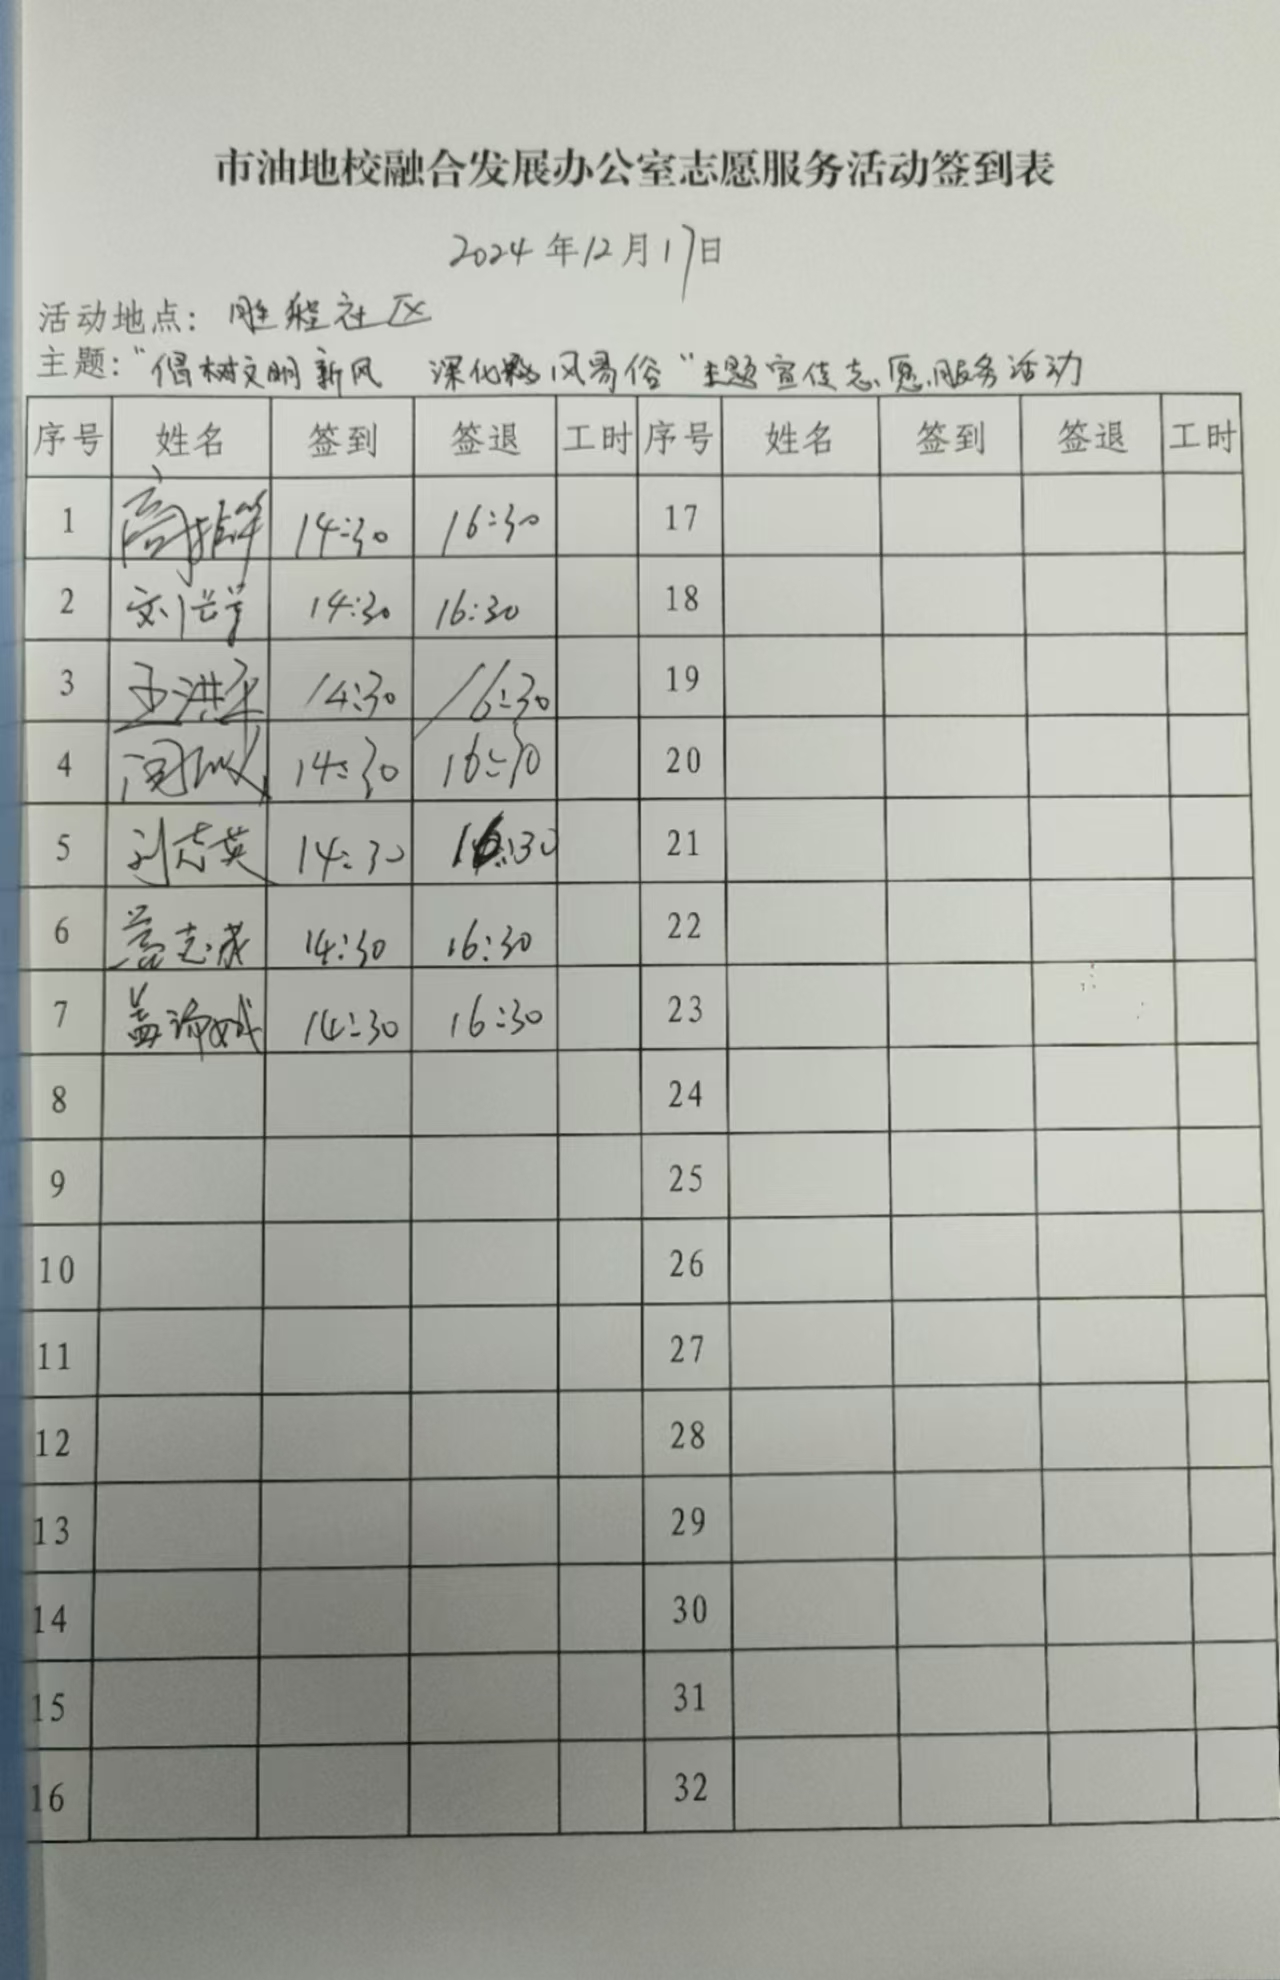 市油地校融合发展办公室志愿服务活动签到表
2024年12月17日
活动地点：社区
主题："倡树文明新风 深化移风易俗"主题宣传志愿服务活动
序号 姓名 签到 签退 工时 序号 姓名 签到 签退 工时
1 14:30 16:30 17
2 14:30 16:30 18
3 王洪 14:30 16:30 19
4 14:30 16:30 20
5 刘志英 14:30 16:30 21
6 14:30 16:30 22
7 盖 14:30 16:30 23
8 24
9 25
10 26
11 27
12 28
13 29
14 30
15 31
16 32